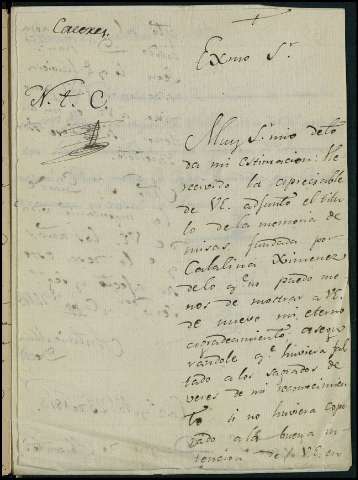 Caceres.
Exmo Sr.
N. A. C.
Muy Sr. mio de to
da mi estimacion: He
recivido la apreciable
de VE. adjunto el titu
lo de la memoria de
misas fundada por
Catalina Ximenez
de lo qe. no puedo me
nos de mostrar a VE.
de nuevo mi eterno
agradecimiento asegu
randole qe. huviera fal
tado a los sagrados de
veres de mi reconocimien
to si no huviera coope
rado a la buena in
tencion de VE. en